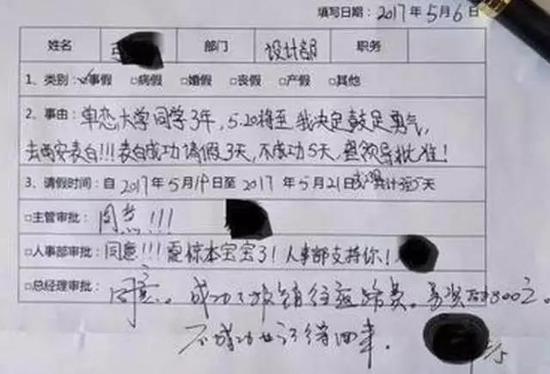 填写日期：2017年5月6日
姓名 部门 设计部 职务
1、类别：☑事假 □病假 □婚假 □丧假 □产假 □其他
2、事由：单恋大学同学3年，5.20将至我决定鼓足勇气，
去西安表白!!!表白成功请假3天，不成功5天，望领导批准！
3、请假时间：自2017年5月19日至2017年5月21日 共计3至5天
□主管审批：同意!!!
□人事部审批：同意!!!震惊本宝宝了！人事部支持你！
□总经理审批：同意。成功了报销往返路费。
不成功也记得回来。